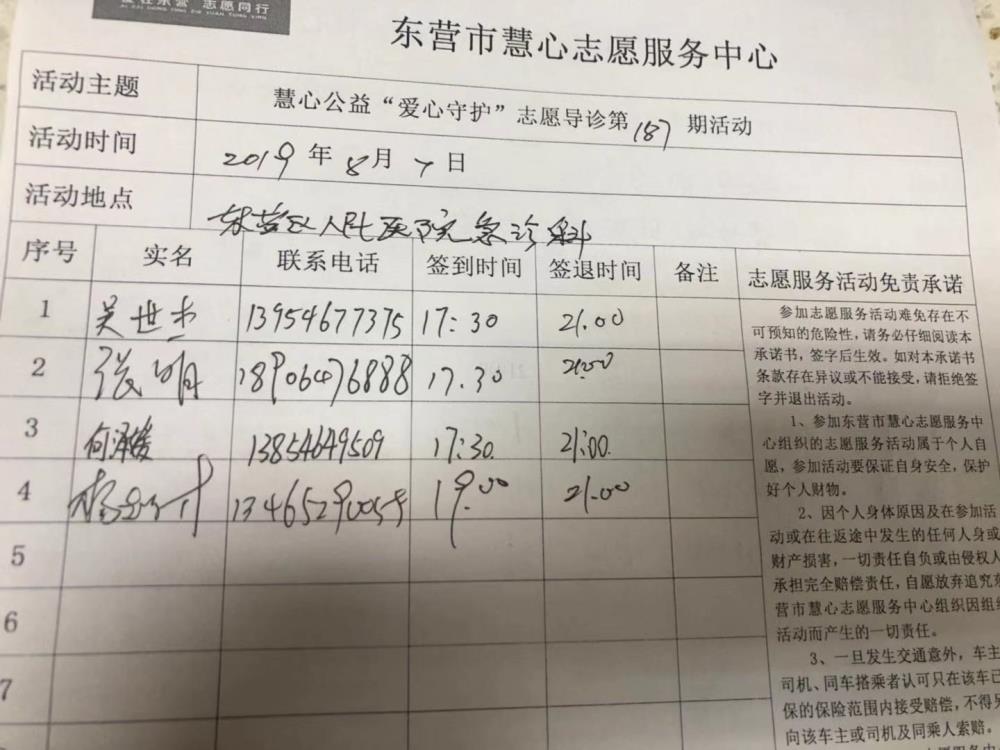 爱在东营 志愿同行
AI ZAI DONG YING ZHI YUAN TONG XING
东营市慧心志愿服务中心
活动主题 慧心公益“爱心守护”志愿导诊第187期活动
活动时间 2019年8月7日
活动地点 东营区人民医院急诊科
序号 实名 联系电话 签到时间 签退时间 备注 志愿服务活动免责承诺
1 吴世杰 13954677375 17:30 21.00
2 张明 18906476888 17.30 21:00
3 何泽媛 13854649509 17:30. 21:00.
4 杨 19.00 21.00
5
6
7
参加志愿服务活动难免存在不
可预知的危险性，请务必仔细阅读本
承诺书，签字后生效。如对本承诺书
条款存在异议或不能接受，请拒绝签
字并退出活动。
1、参加东营市慧心志愿服务中
心组织的志愿服务活动属于个人自
愿，参加活动要保证自身安全，保护
好个人财物。
2、因个人身体原因及在参加活
动或在往返途中发生的任何人身或
财产损害，一切责任自负或由侵权人
承担完全赔偿责任，自愿放弃追究东
营市慧心志愿服务中心组织因组织
活动而产生的一切责任。
3、一旦发生交通意外，车主
司机、同车搭乘者认可只在该车已
保的保险范围内接受赔偿，不得另
向该车主或司机及同乘人索赔。